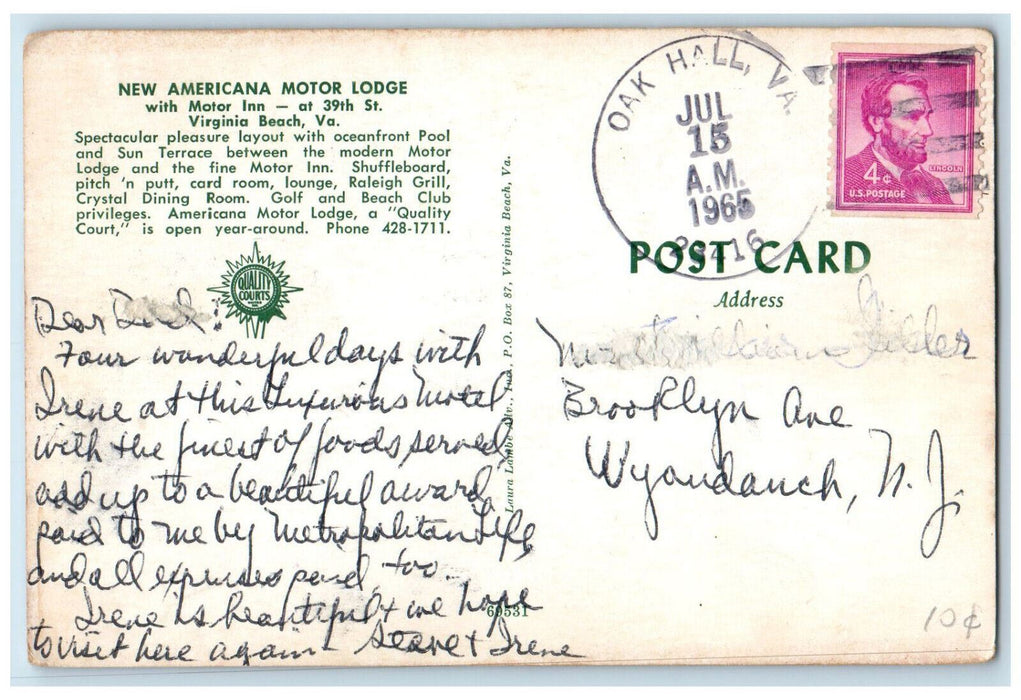 NEW AMERICANA MOTOR LODGE
with Motor Inn — at 39th St.
Virginia Beach, Va.
Spectacular pleasure layout with oceanfront Pool
and Sun Terrace between the modern Motor
Lodge and the fine Motor Inn. Shuffleboard,
pitch 'n putt, card room, lounge, Raleigh Grill,
Crystal Dining Room. Golf and Beach Club
privileges. Americana Motor Lodge, a "Quality
Court," is open year-around. Phone 428-1711.
QUALITY
COURTS
Dear
Four wonderful days with
Irene at this Luxurious Motel
with the finest of foods served
add up to a beautiful award
paid to me by Metropolitan Life
and all expenses paid, too.
Irene is beautiful & we hope
to visit here again Steve & Irene
Laura Lambe Adv., Ind., P.O. Box 87, Virginia Beach, Va.
60531
OAK HALL, VA.
JUL
15
A.M.
1965
23416
4¢
LINCOLN
U.S. POSTAGE
POST CARD
Address
Brooklyn Ave
Wyandanch, N.J.
10¢